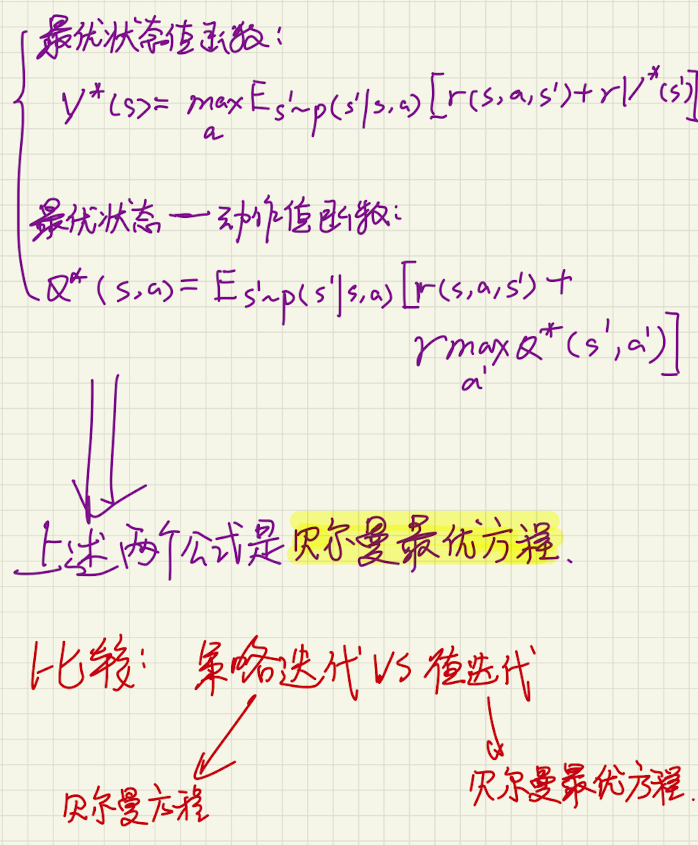 最优状态值函数:
V*(s)= max_a E_{s'~p(s'|s,a)} [r(s,a,s')+rV*(s')]
最优状态一动作值函数:
Q*(s,a)= E_{s'~p(s'|s,a)} [r(s,a,s')+
γmax_{a'} Q*(s',a')]
上述两个公式是贝尔曼最优方程.
比较: 策略迭代 VS 值迭代
贝尔曼方程
贝尔曼最优方程.